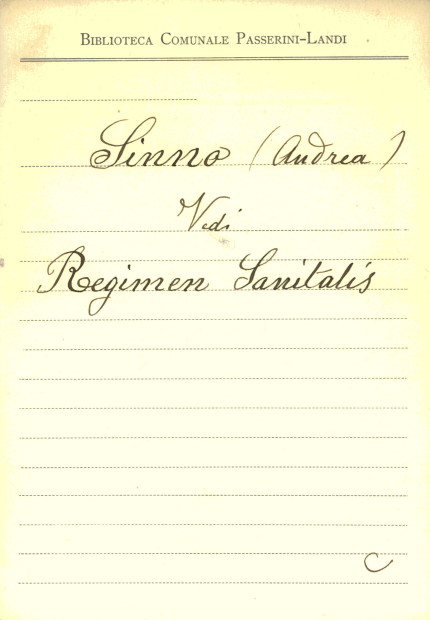 Biblioteca Comunale Passerini-Landi
Sinno (Andrea)
Vedi
Regimen Sanitatis
C